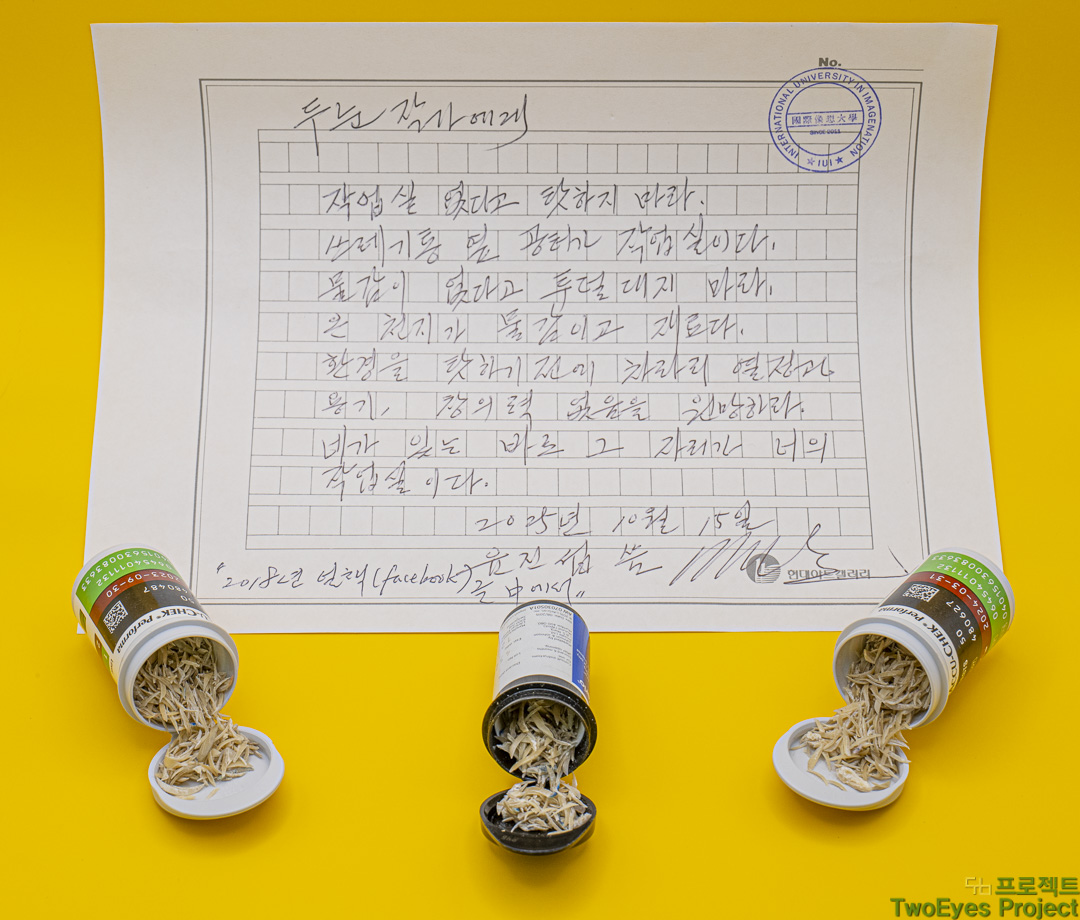 No.
INTERNATIONAL UNIVERSITY IN IMAGENATION
國際像想大學
SINCE 2011
★ IUI ★
두눈 작가에게
작업실 없다고 탓하지 마라.
쓰레기통 옆 공터가 작업실이다.
물감이 없다고 투덜대지 마라.
온 천지가 물감이고 재료다.
환경을 탓하기 전에 차라리 열정과
용기, 창의력 없음을 원망하라.
네가 있는 바로 그 자리가 너의
작업실이다.
2025년 10월 15일
윤진섭 씀
현대아트갤러리
"2018년 번채(facebook)
글 中에서"
2023-09-30
CU-CHEK® Performa
2024-03-31
480627
50
CU-CHEK® Performa
두눈 프로젝트
TwoEyes Project